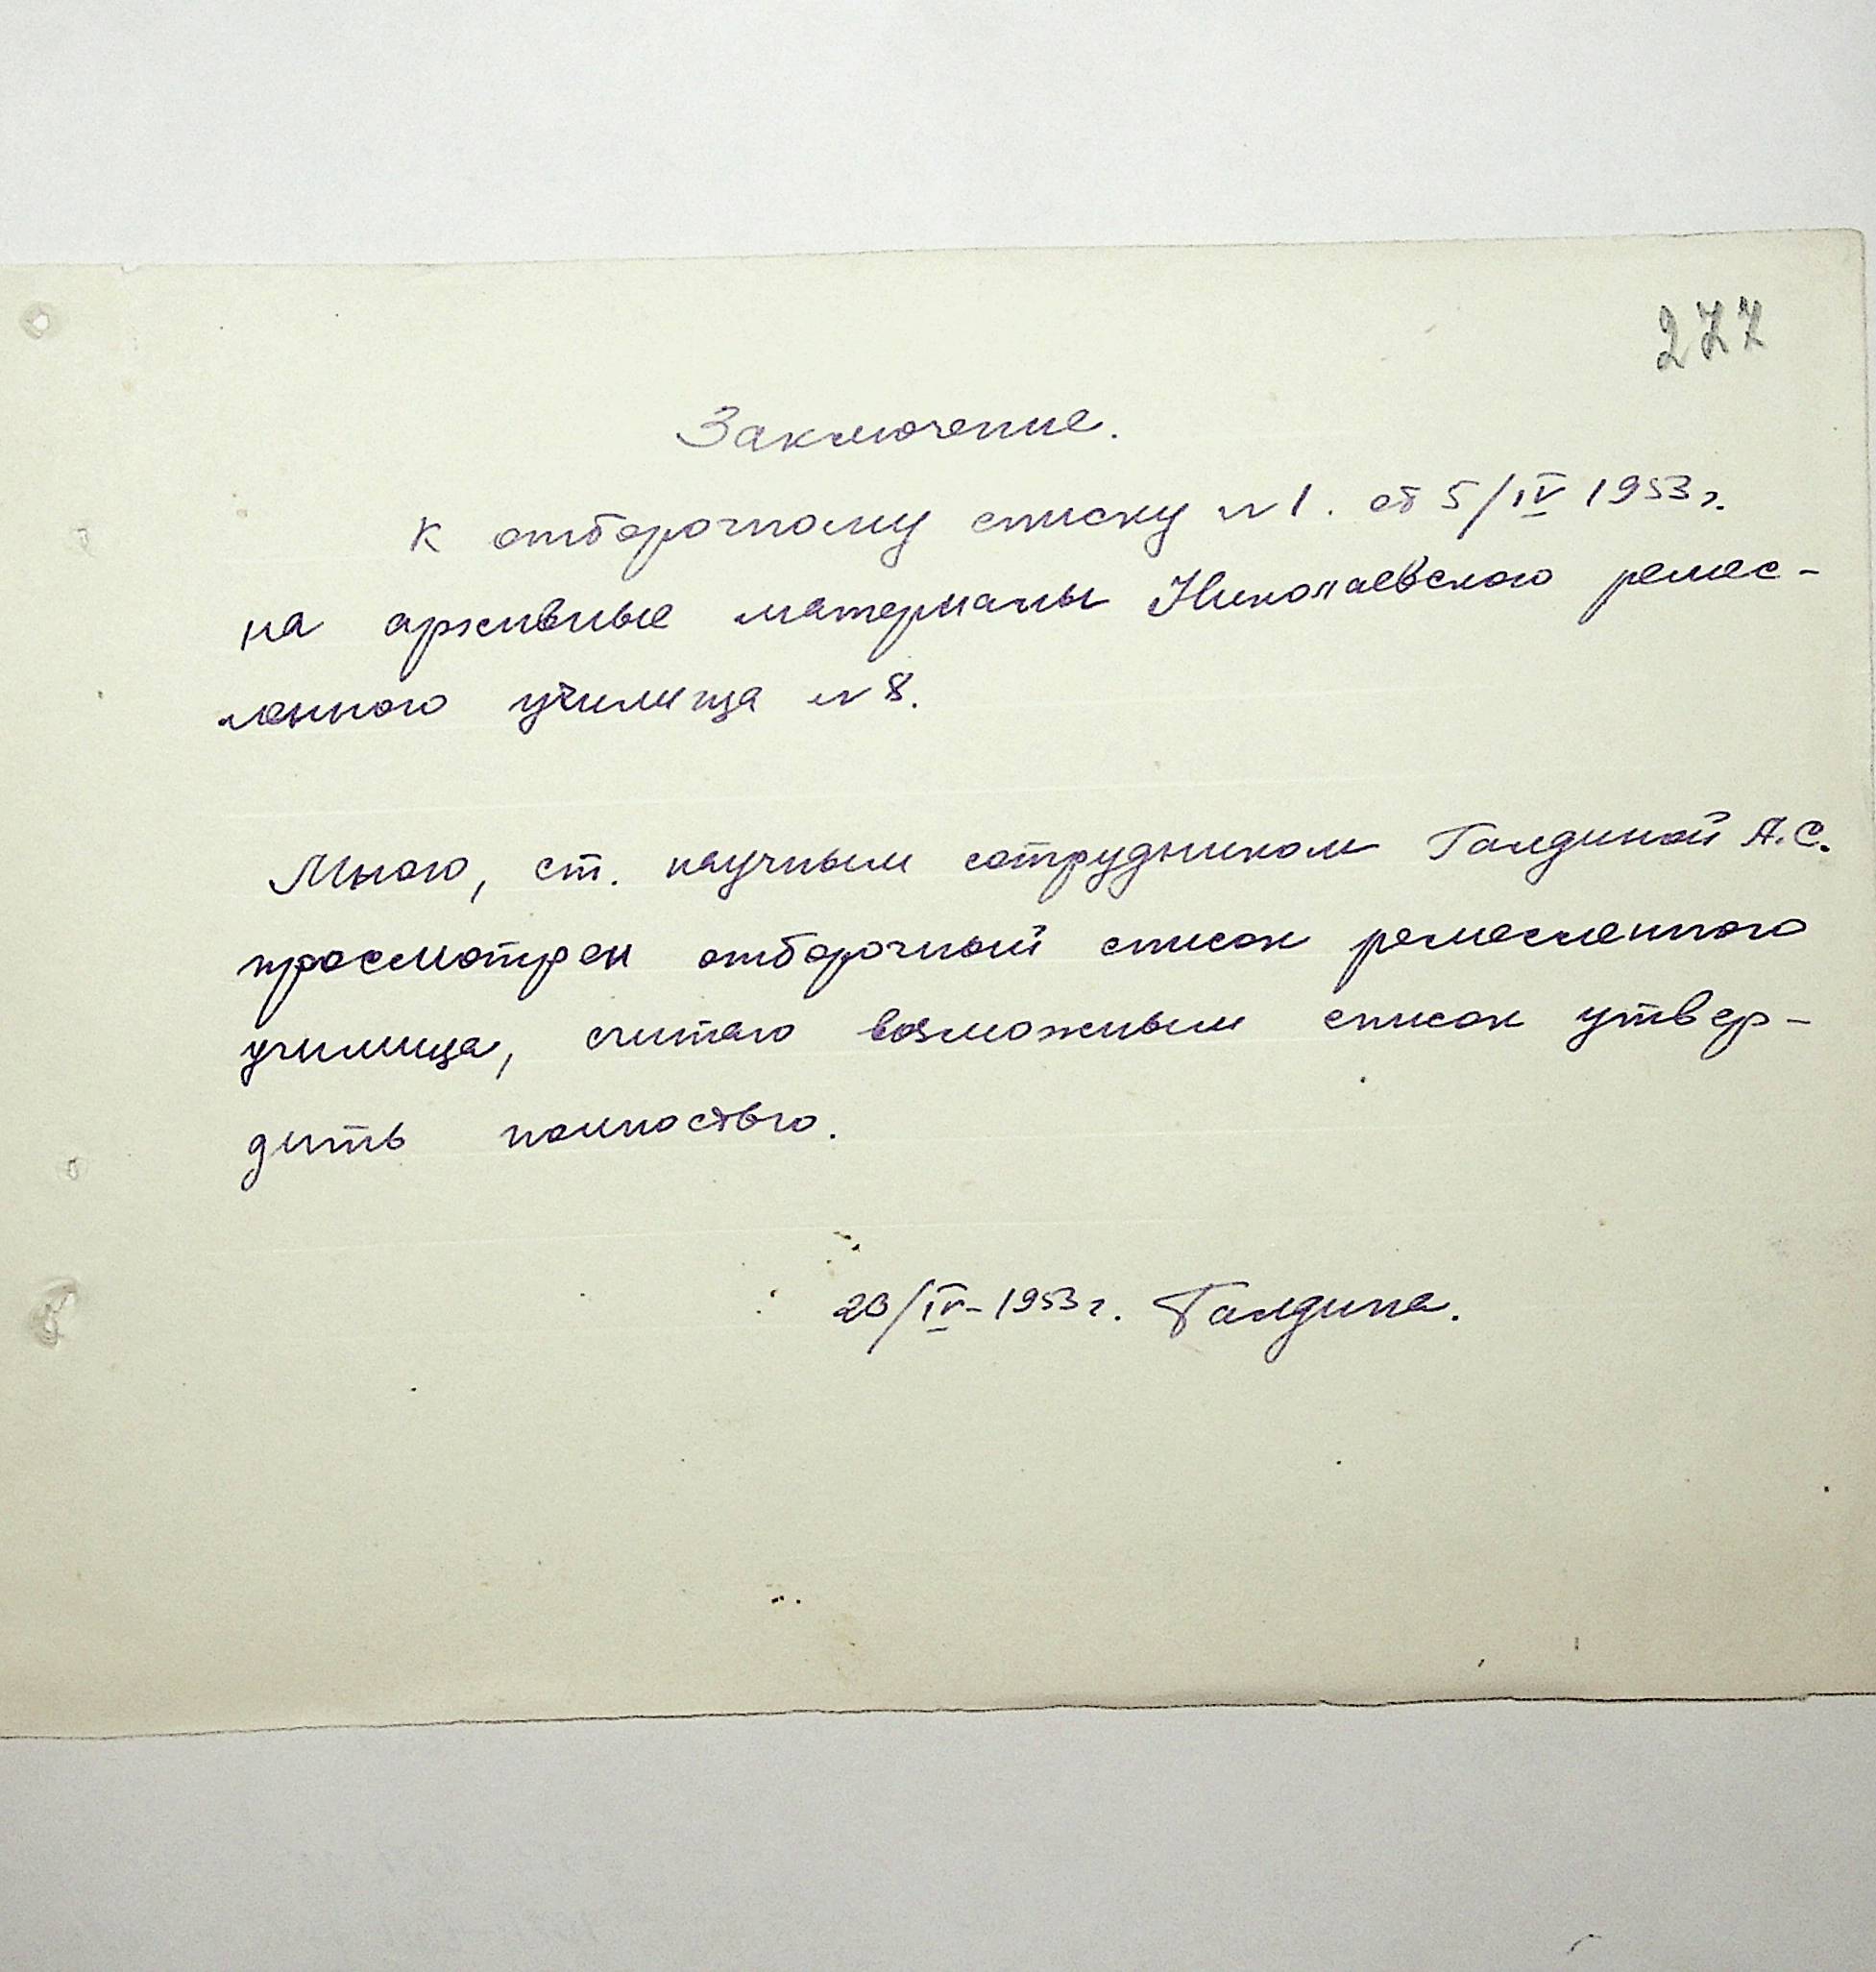 277
Заключение.
К отборочному списку № 1. от 5/IV 1953 г.
на архивные материалы Николаевского ремес-
ленного училища № 8.
Мною, ст. научным сотрудником Галдиной А.С.
просмотрен отборочный список ремесленного
училища, считаю возможным список утвер-
дить полностью.
20/IV-1953 г. Галдина.